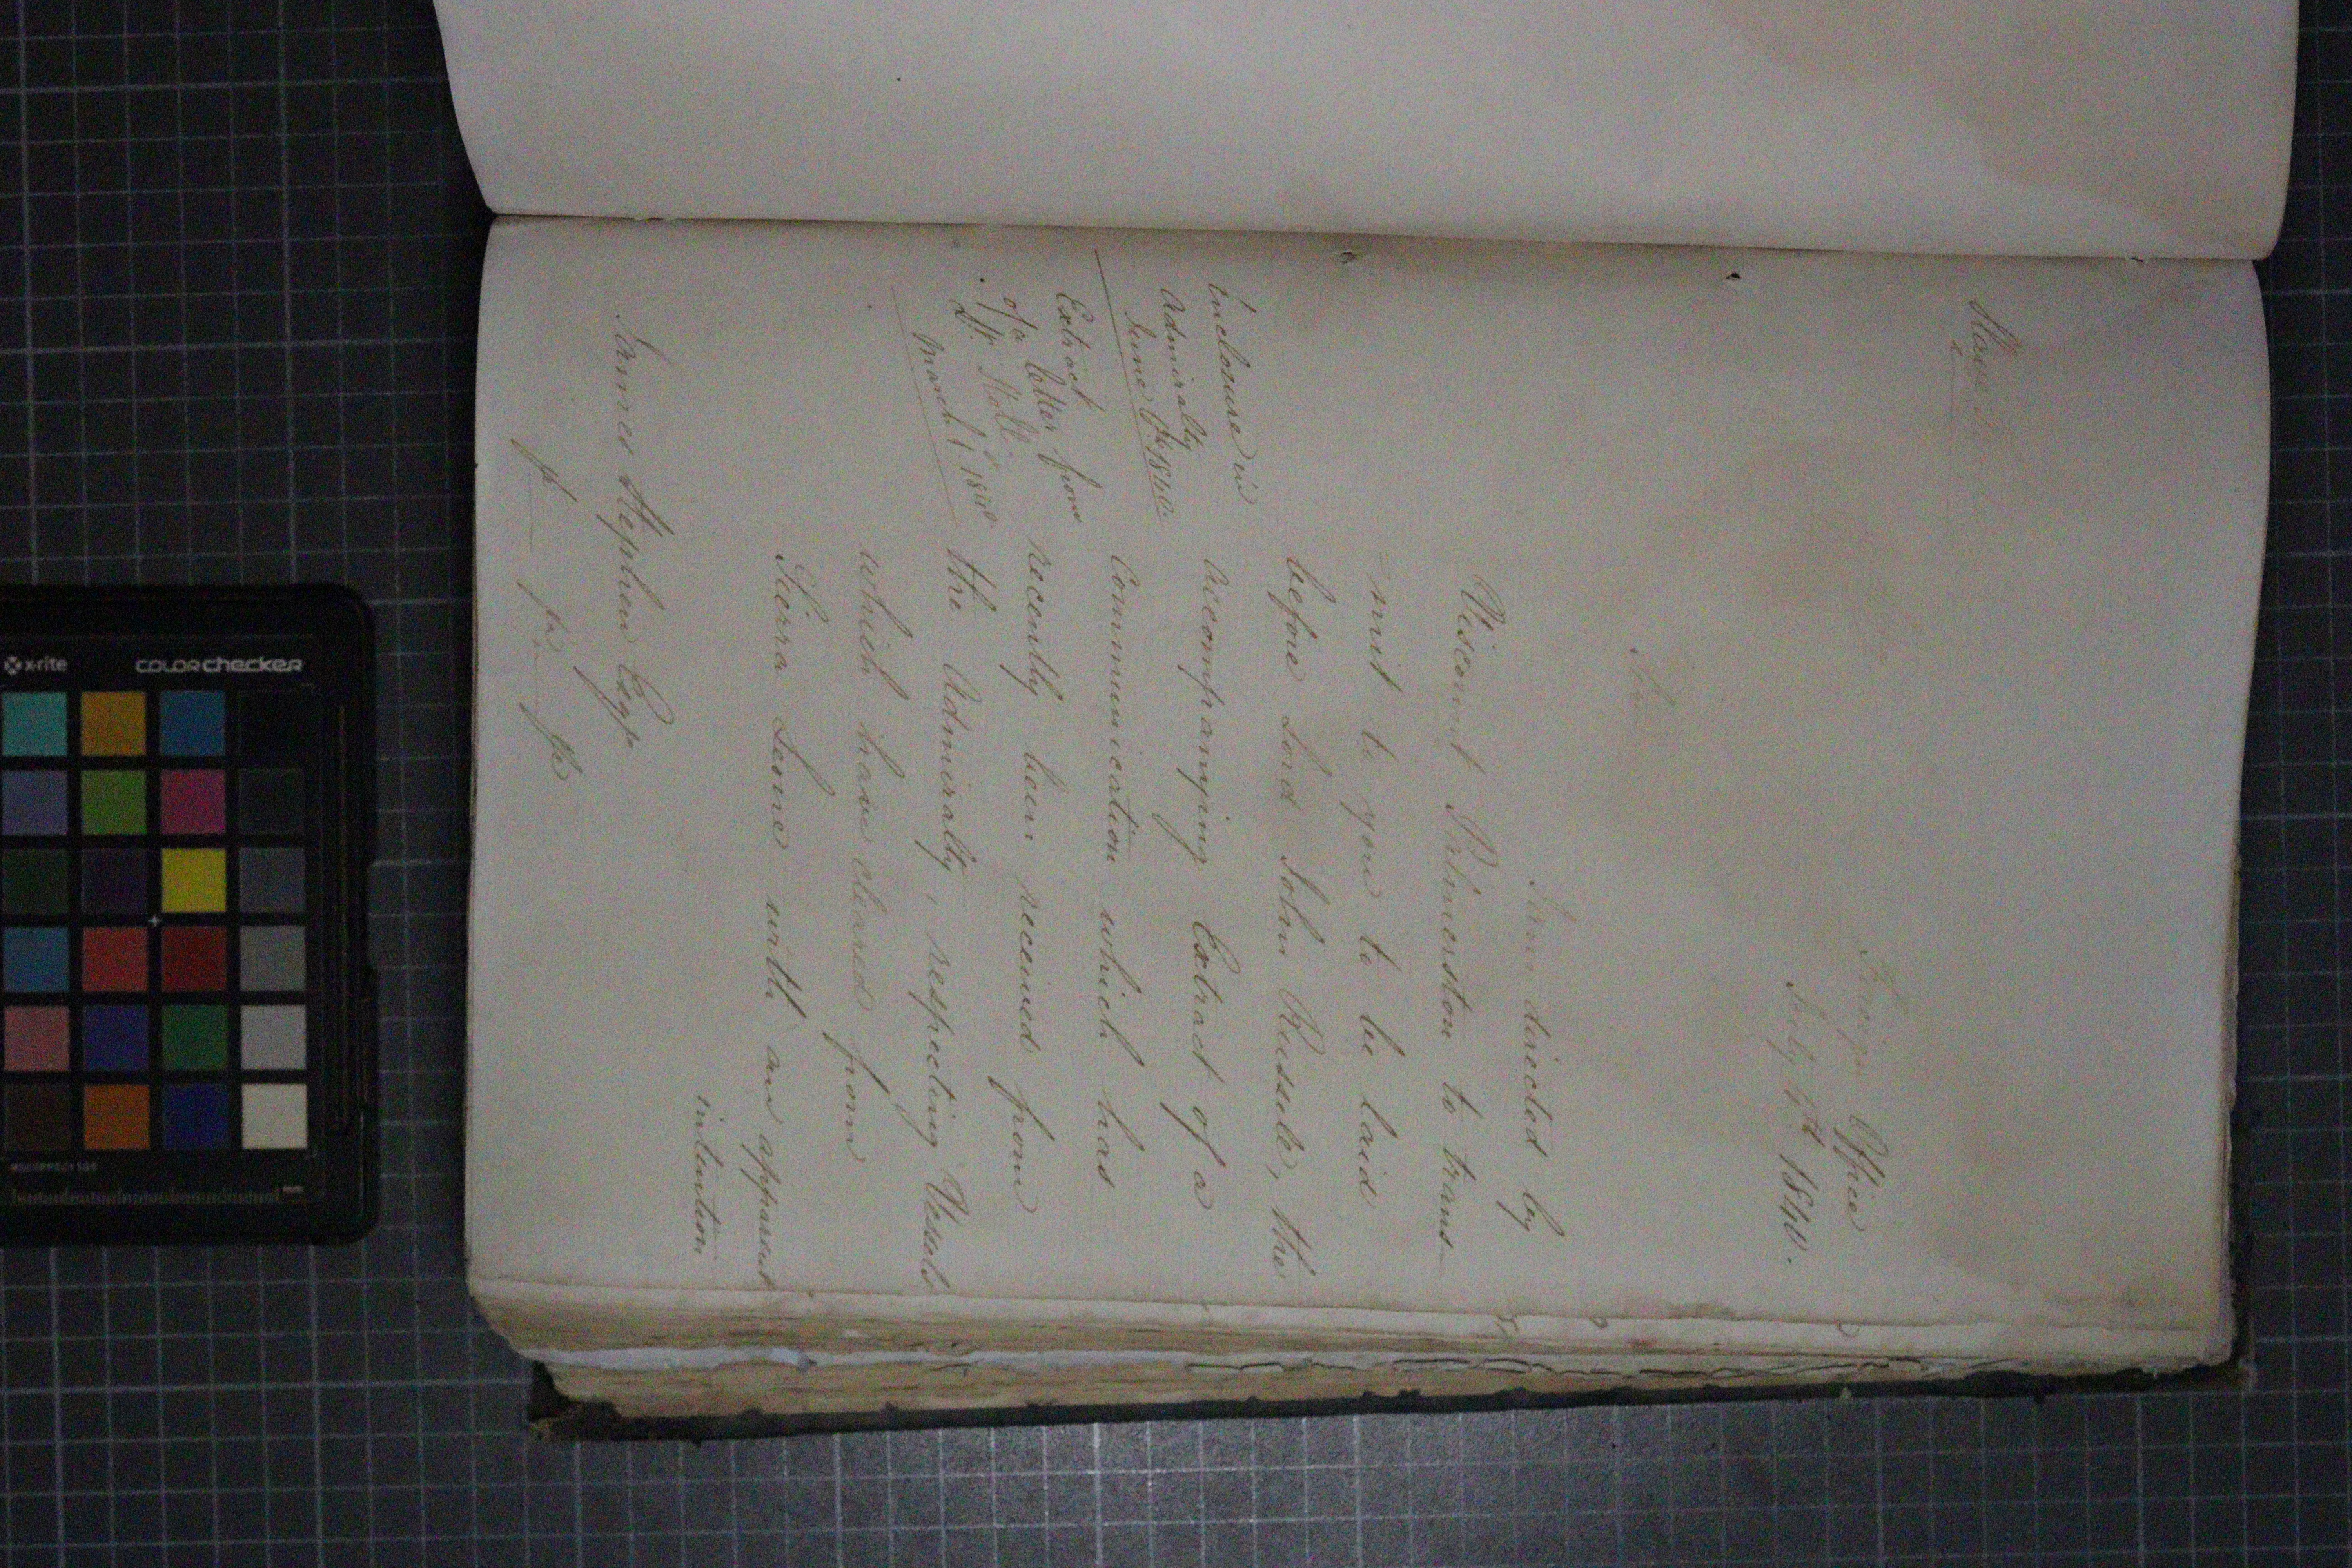 Slave Trade
Foreign Office
July 4th 1840.
Sir
I am directed by
Viscount Palmerston to trans-
-mit to you to be laid
before Lord John Russell, the
accompanying Extract of a
Communication which has
recently been received from
the Admiralty, respecting Vessels
which have cleared from
Sierra Leone with an apparent
intention
Inclosure in
Admiralty
June 1840.
Extract
of a letter from
Lt.
March 1 1840
James Stephen Esqr
&c &c &c
x-rite
colorchecker